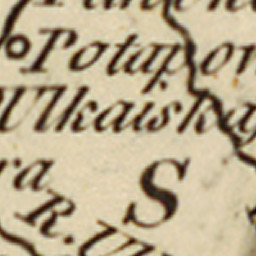 Potapo
Ulkaiska
ra
S
R. Ul